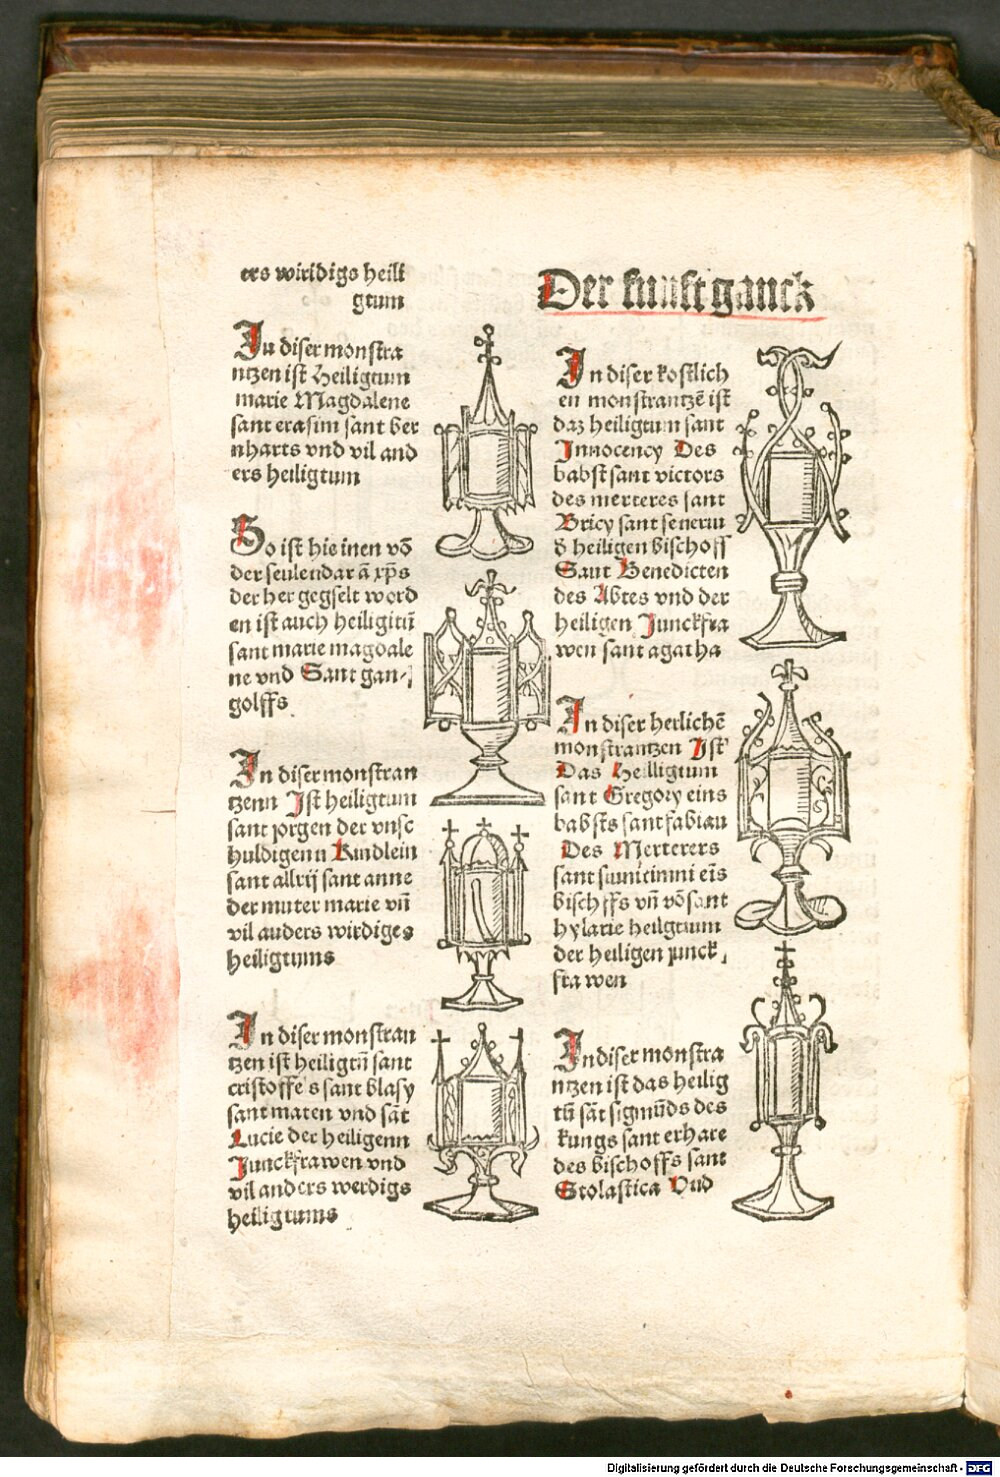 ers wiridigs heili
gtum
In diser monstra
ntzen ist Heiligtum
marie Magdalene
sant erasim sant ber
nharts vnd vil and
ers heiligtum
So ist hie inen vō
der seulen dar ā xp̄s
der her gegselt word
en ist auch heiligitū
sant marie magdale
ne vnd Sant gan⸗
golffs
In diser monstran
tzenn Ist heiligtum
sant jorgen der vnsc
huldigenn Kindlein
sant allrij sant anne
der muter marie vn̄
vil anders wirdiges
heiligtums
In diser monstran
tzen ist heiligtū sant
cristoffels sant blasy
sant maten vnd sāt
Lucie der heiligenn
Junckfrawen vnd
vil anders werdigs
heiligtums
Der funft ganck
In diser kostlich
en monstrantzē ist
daz heiligtum sant
Innocency Des
babst sant victors
des merteres sant
Bricy sant seuerin
d̄ heiligen bischoff
Sant Benedicten
des Abtes vnd der
heiligen Junckfra
wen sant agatha
In diser herlichē
monstrantzen Ist
Das Heilligtum
sant Gregory eins
babsts sant fabian
Des Merterers
sant eīs
bischffs vn̄ vō sant
hylarie heilgtum
der heiligen junck
frawen
In diser monstra
ntzen ist das heilig
tū sāt sigmūds des
kungs sant erhare
des bischoffs sant
Scolastica Vnd
Digitalisierung gefördert durch die Deutsche Forschungsgemeinschaft - DFG